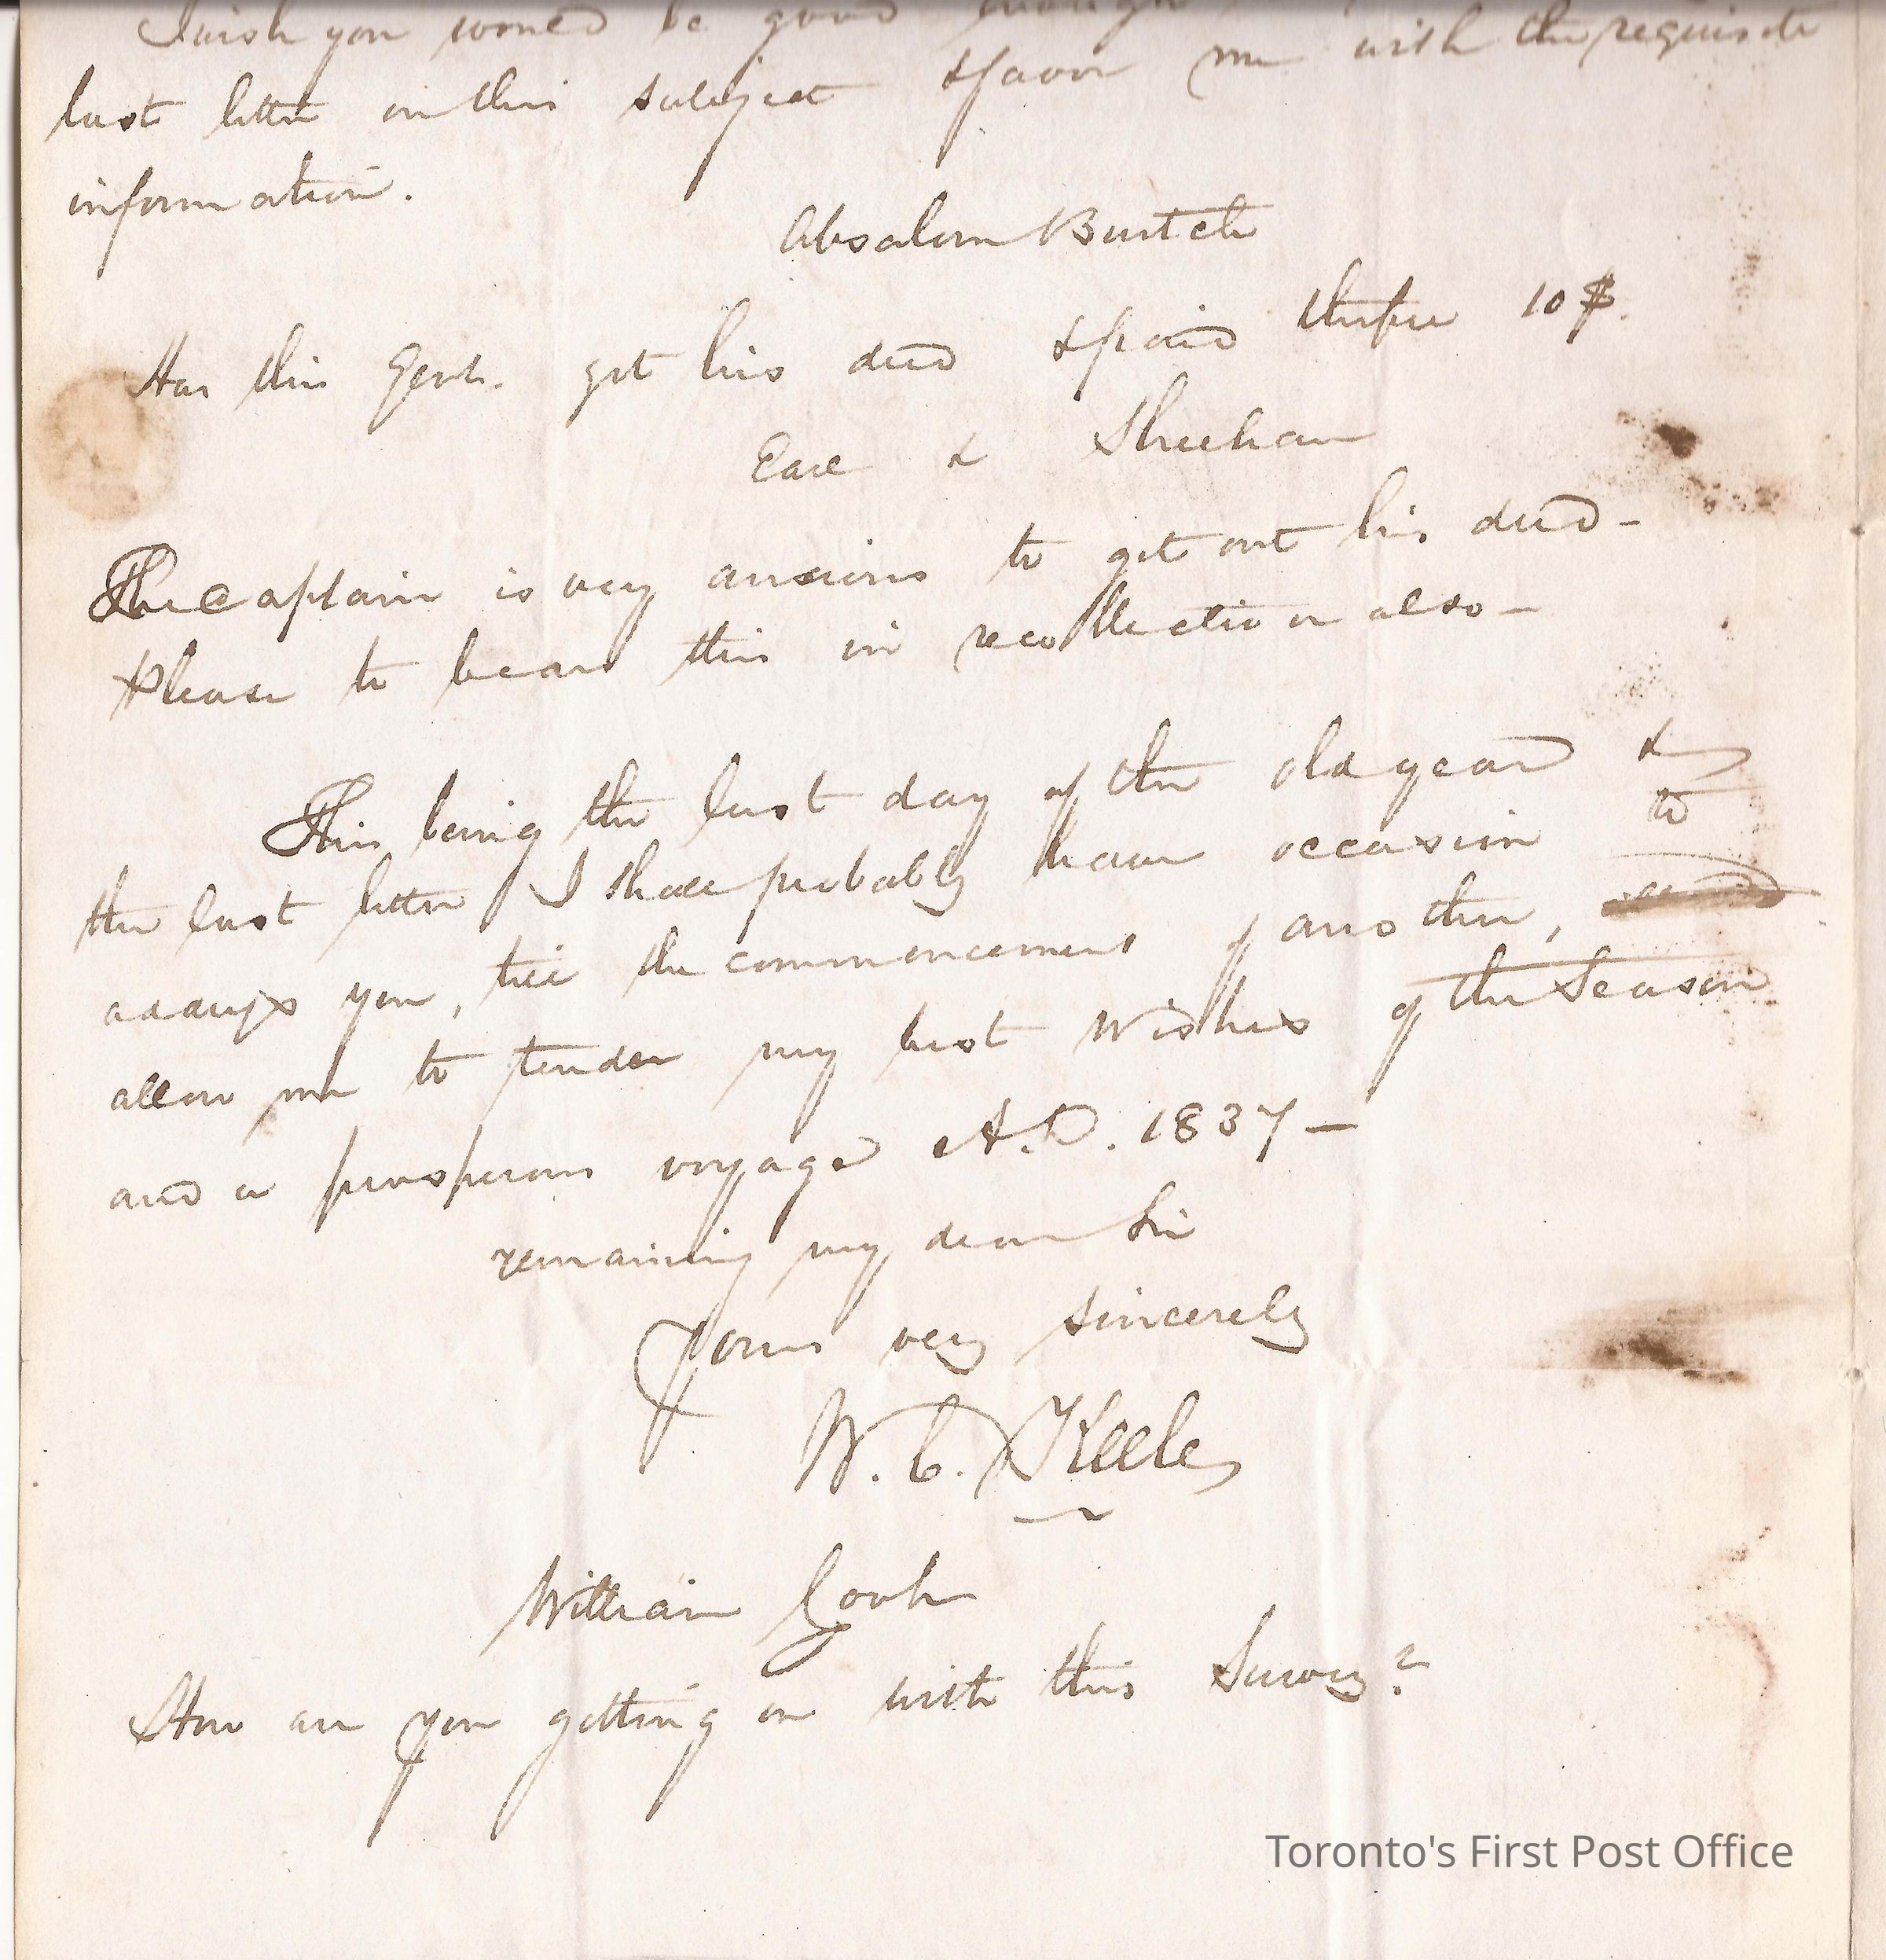 I wish you would be good enough
last letter on this subject & favor me with the requisite
information.
Absalom Burtch
Has this Gent. got his deed & paid therefore 10 $.
Earl & Sheehan
The Captain is very anxious to get out his deed -
Please to bear this in recollection also -
This being the last day of the old year &
the last letter I shall probably have occasion to
address you, till the commencement of another,
allow me to tender my best Wishes of the Season
and a prosperous voyage A.D. 1837 -
remaining my dear Sir
Yours very sincerely
W. C. Keele
William
How are you getting on with this Survey?
Toronto's First Post Office